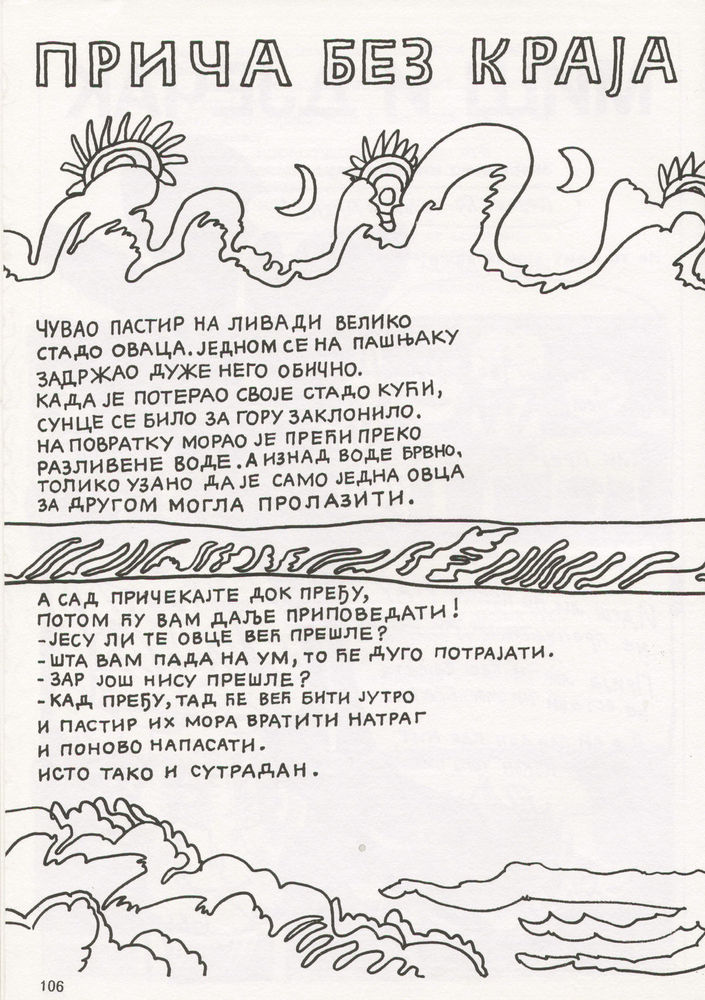 ПРИЧА БЕЗ КРАЈА
ЧУВАО ПАСТИР НА ЛИВАДИ ВЕЛИКО
СТАДО ОВАЦА. ЈЕДНОМ СЕ НА ПАШЊАКУ
ЗАДРЖАО ДУЖЕ НЕГО ОБИЧНО.
КАДА ЈЕ ПОТЕРАО СВОЈЕ СТАДО КУЋИ,
СУНЦЕ СЕ БИЛО ЗА ГОРУ ЗАКЛОНИЛО.
НА ПОВРАТКУ МОРАО ЈЕ ПРЕЋИ ПРЕКО
РАЗЛИВЕНЕ ВОДЕ. А ИЗНАД ВОДЕ БРВНО,
ТОЛИКО УЗАНО ДА ЈЕ САМО ЈЕДНА ОВЦА
ЗА ДРУГОМ МОГЛА ПРОЛАЗИТИ.
А САД ПРИЧЕКАЈТЕ ДОК ПРЕЂУ,
ПОТОМ ЋУ ВАМ ДАЉЕ ПРИПОВЕДАТИ!
- ЈЕСУ ЛИ ТЕ ОВЦЕ ВЕЋ ПРЕШЛЕ?
- ШТА ВАМ ПАДА НА УМ, ТО ЋЕ ДУГО ПОТРАЈАТИ.
- ЗАР ЈОШ НИСУ ПРЕШЛЕ?
- КАД ПРЕЂУ, ТАД ЋЕ ВЕЋ БИТИ ЈУТРО
И ПАСТИР ИХ МОРА ВРАТИТИ НАТРАГ
И ПОНОВО НАПАСАТИ.
ИСТО ТАКО И СУТРАДАН.
106